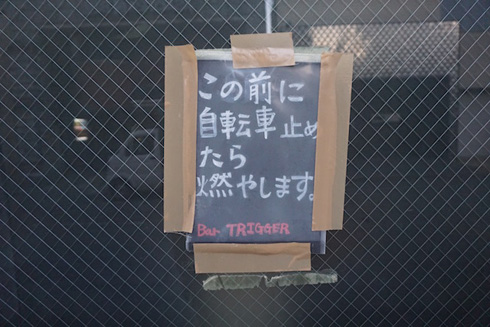 この前に
自転車止め
たら
燃やします。
Bar TRIGGER